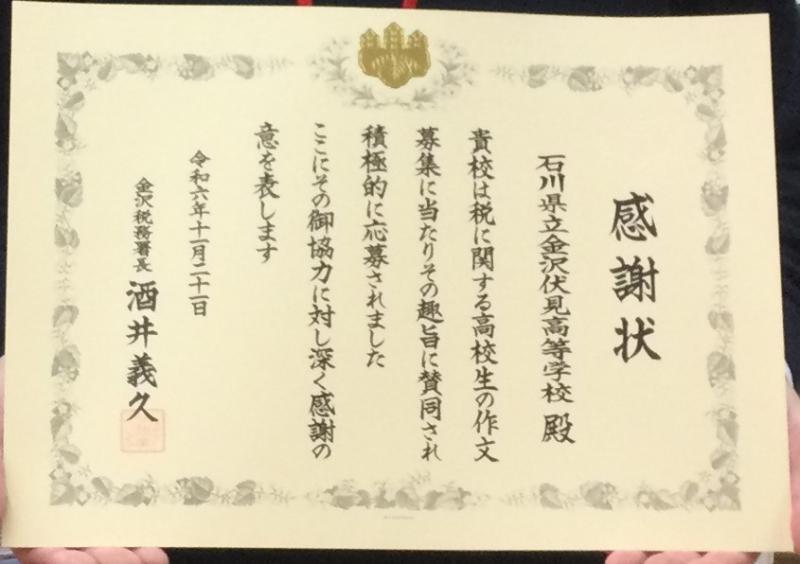 感謝状
石川県立金沢伏見高等学校 殿
貴校は税に関する高校生の作文
募集に当たりその趣旨に賛同され
積極的に応募されました
ここにその御協力に対し深く感謝の
意を表します
令和六年十一月二十一日
金沢税務署長 酒井義久